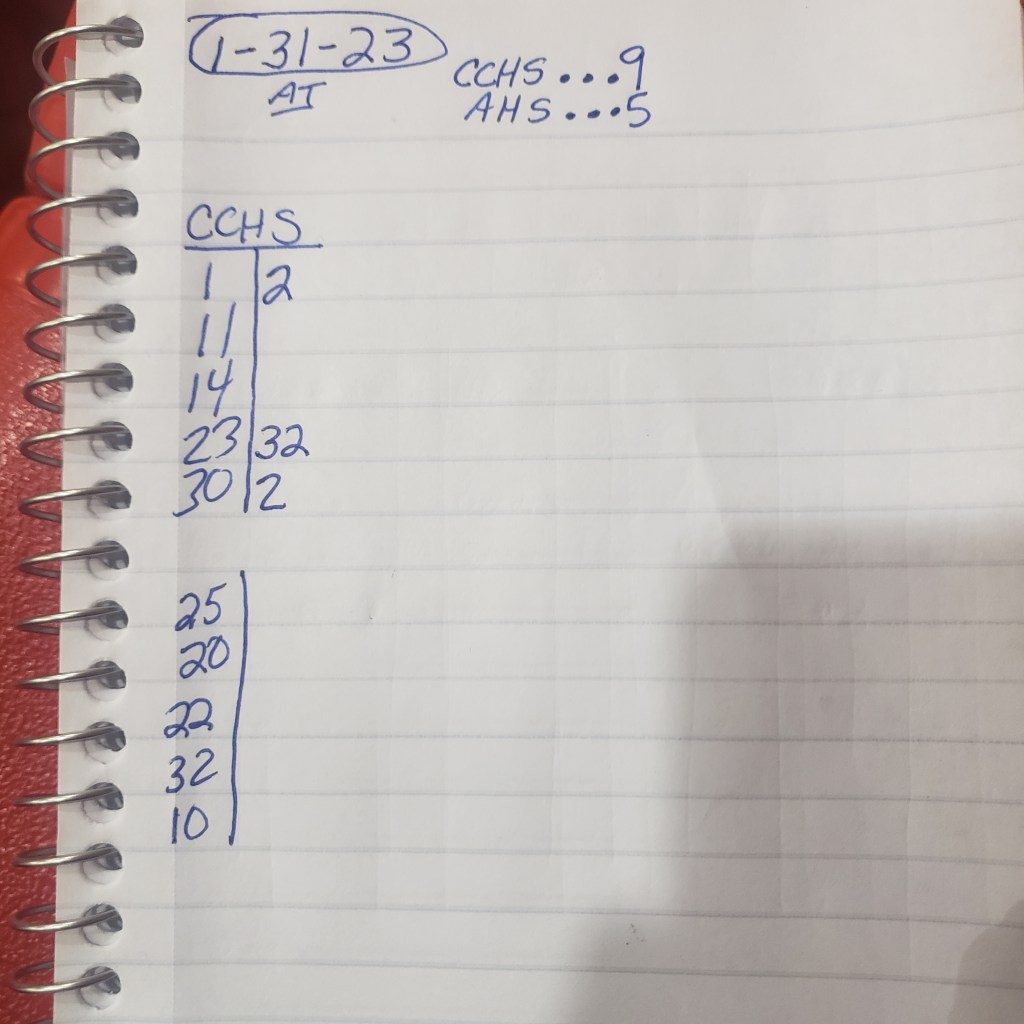 1-31-23
AT
CCHS...9
AHS...5
CCHS
1 2
11
14
23 32
30 2
25
20
22
32
10